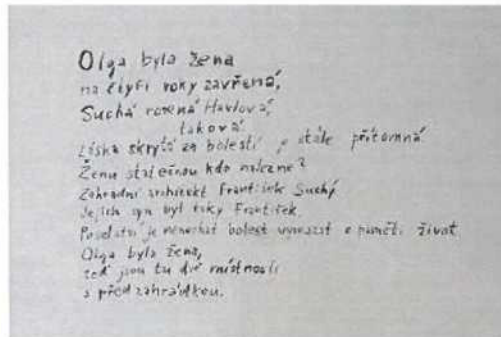 Olga byla žena
na čtyři roky zavřená,
Suchá rozená Havlová,
taková.
Láska skrytá za bolestí je stále přítomná
Ženu statečnou kdo nalezne?
Zahradní architekt František Suchý
Jejich syn byl taky František.
Poselství je nenechat bolest vymazat z paměti život
Olga byla žena,
teď jsou tu dvě místnosti
s předzahrádkou.